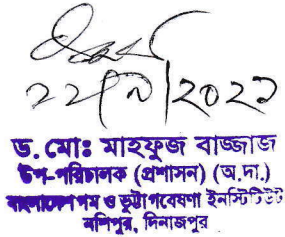 ২২/৯/২০২১
ড. মোঃ মাহফুজ বাজ্জাজ
উপ-পরিচালক (প্রশাসন) (অ.দা.)
বাংলাদেশ গম ও ভুট্টা গবেষণা ইনস্টিটিউট
নশিপুর, দিনাজপুর